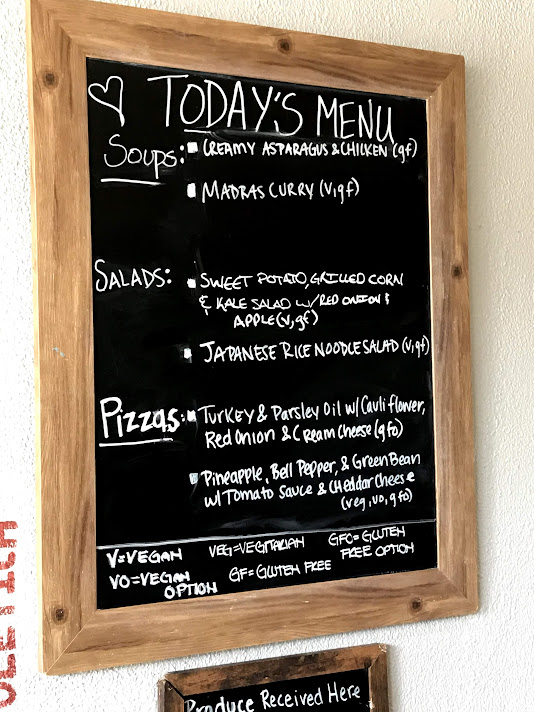 TODAY'S MENU
Soups: CREAMY ASPARAGUS & CHICKEN (gf)
MADRAS CURRY (V,gf)
SALADS: SWEET POTATO, GRILLED CORN
& KALE SALAD W/RED ONION &
APPLE (V,gf)
JAPANESE RICE NOODLE SALAD (V,gf)
Pizzas: Turkey & Parsley Oil w/ Cauliflower,
Red Onion & Cream Cheese (gfo)
Pineapple, Bell Pepper, & Green Bean
w/ Tomato Sauce & Cheddar Cheese
(veg, vo, gfo)
V=VEGAN VEG=VEGITARIAN GFO=GLUTEN
FREE OPTION
VO=VEGAN
OPTION GF=GLUTEN FREE
Produce Received Here